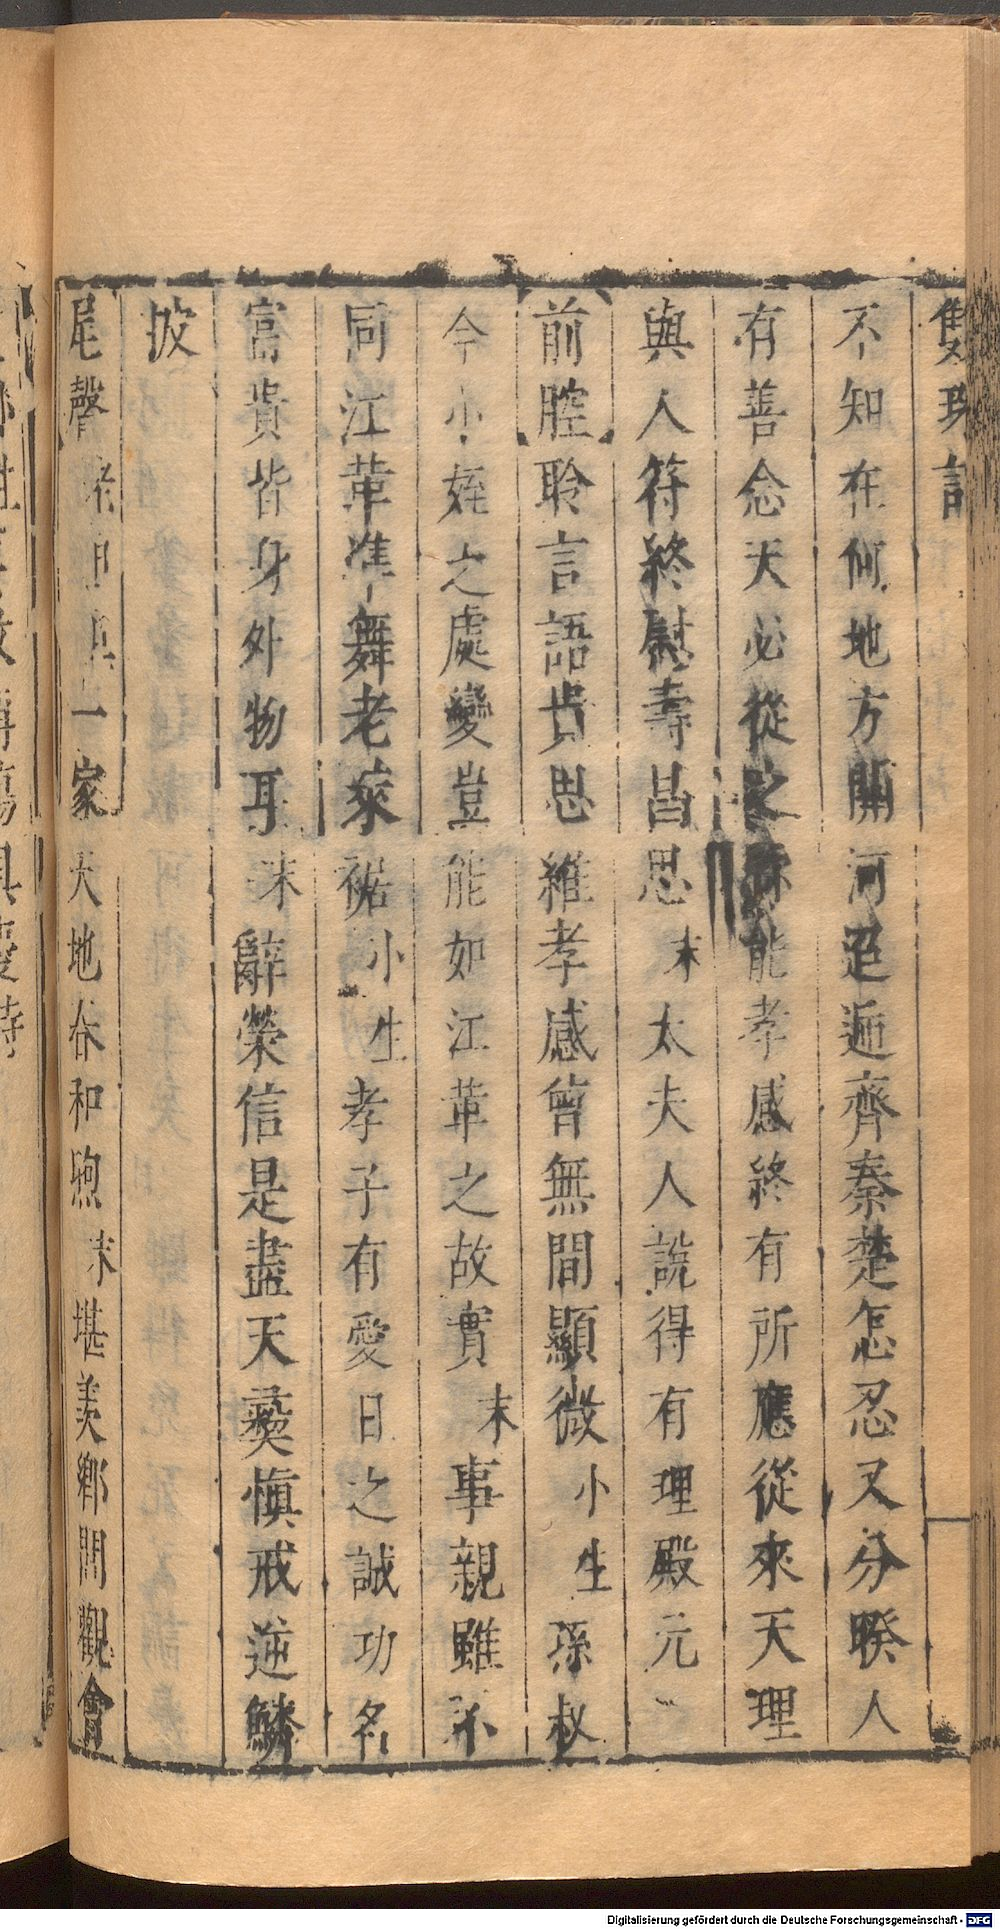 雙珠記
不知在何地方關河迢遞齊秦楚怎忍又分睽人
有善念天必從之你能孝感終有所應從來天理
與人符終慰壽昌思末太夫人說得有理殿元
前腔聆言語貴思維孝感曾無間顯微小生孫叔
今小姪之處變豈能如江革之故實末事親雖不
同江革準舞老萊裾小生孝子有愛日之誠功名
富貴皆身外物耳末辭榮信是盡天彝慎戒逆鱗
披
尾聲一家天地春和煦末堪羨鄉閭觀會
Digitalisierung gefördert durch die Deutsche Forschungsgemeinschaft - DFG